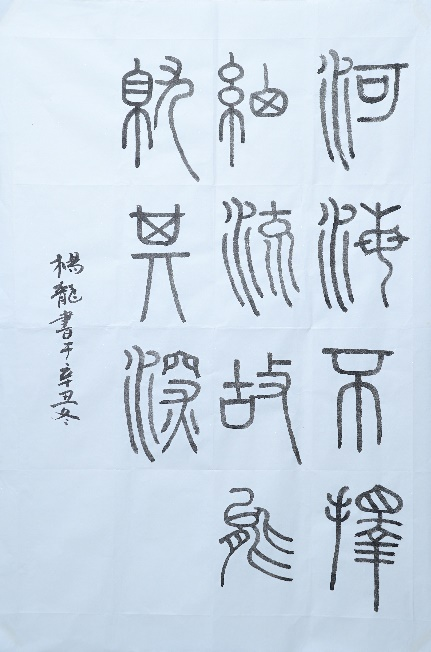 河海不擇
細流故能
就其深
楊龍書于辛丑冬